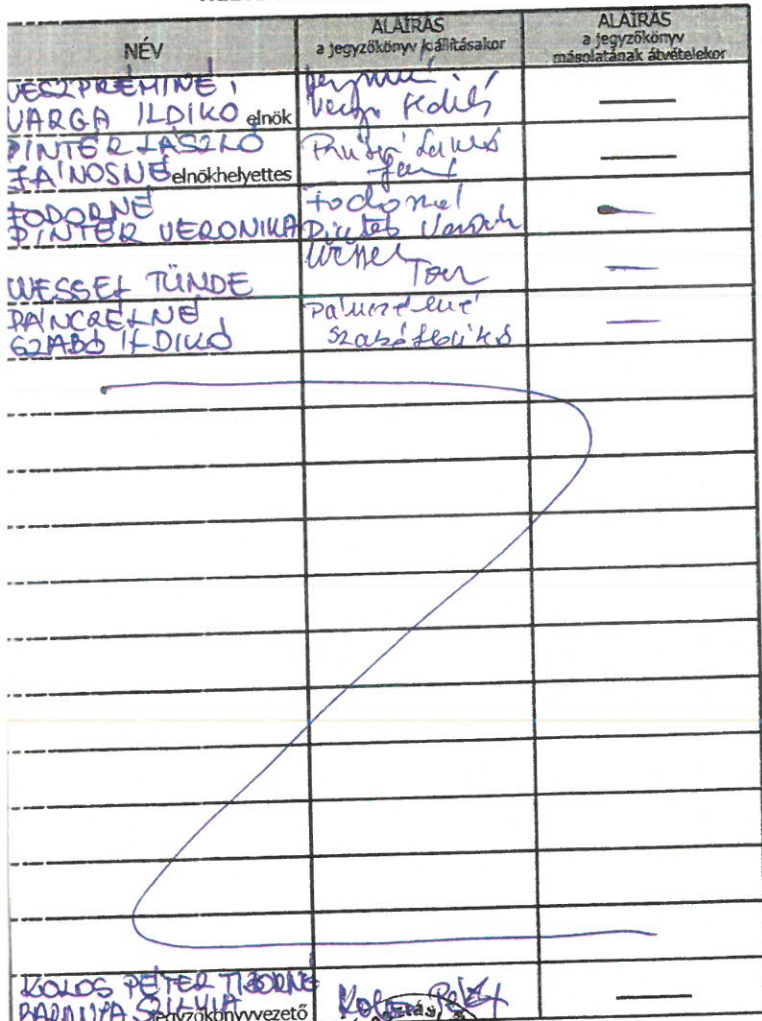 NÉV
ALÁÍRÁS
a jegyzőkönyv kiállításakor
ALÁÍRÁS
a jegyzőkönyv
másolatának átvételekor
VESZPRÉMINÉ
VARGA ILDIKÓ elnök
PINTÉR LÁSZLÓ
JÁNOSNÉ elnökhelyettes
FODORNÉ
PINTÉR VERONIKA
Fodorné
Pintér
WESSEL TÜNDE
Wessel
PÁNCZÉLNÉ
SZABÓ ILDIKÓ
Pánczélné
Szabó Ildikó
KOLOS PÉTER TIBORNÉ
BARANYA SZILVIA jegyzőkönyvvezető